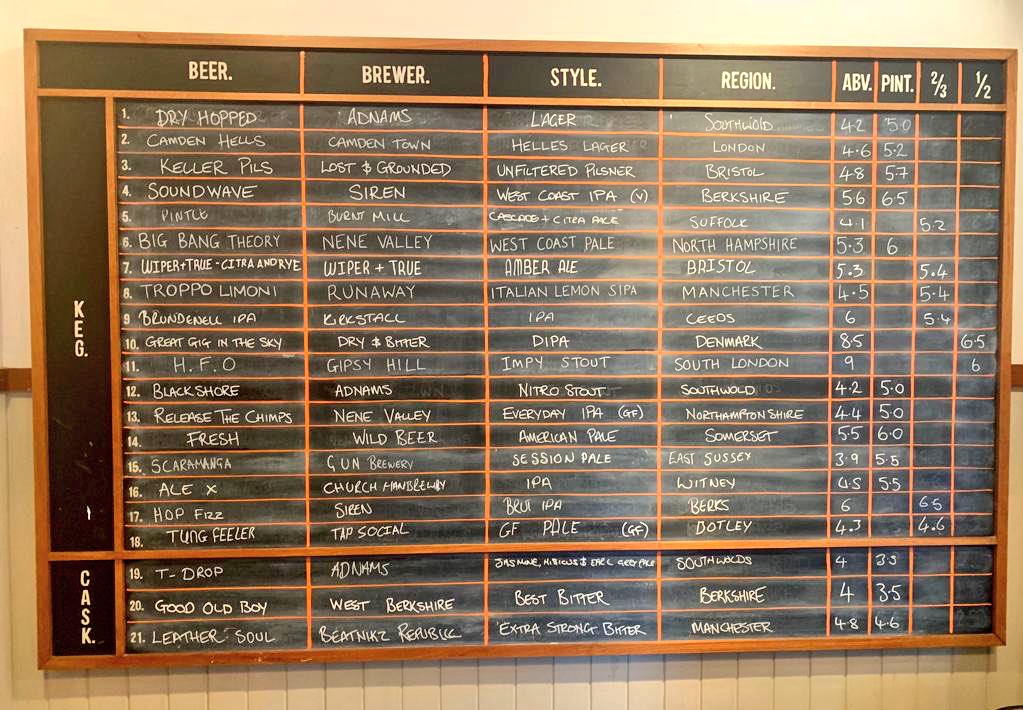 BEER. BREWER. STYLE. REGION. ABV. PINT. 2/3 1/2
KEG.
1. DRY HOPPED ADNAMS LAGER SOUTHWOLD 4.2 5.0
2. CAMDEN HELLS CAMDEN TOWN HELLES LAGER LONDON 4.6 5.2
3. KELLER PILS LOST & GROUNDED UNFILTERED PILSNER BRISTOL 4.8 5.7
4. SOUNDWAVE SIREN WEST COAST IPA (V) BERKSHIRE 5.6 6.5
5. PINTLE BURNT MILL CASCADE + CITRA PALE SUFFOLK 4.1 5.2
6. BIG BANG THEORY NENE VALLEY WEST COAST PALE NORTH HAMPSHIRE 5.3 6
7. WIPER+TRUE-CITRA AND RYE WIPER + TRUE AMBER ALE BRISTOL 5.3 5.4
8. TROPPO LIMONI RUNAWAY ITALIAN LEMON SIPA MANCHESTER 4.5 5.4
9. BRUNDENELL IPA KIRKSTALL IPA LEEDS 6 5.4
10. GREAT GIG IN THE SKY DRY & BITTER DIPA DENMARK 8.5 6.5
11. H.F.O GIPSY HILL IMPY STOUT SOUTH LONDON 9 6
12. BLACKSHORE ADNAMS NITRO STOUT SOUTHWOLD 4.2 5.0
13. RELEASE THE CHIMPS NENE VALLEY EVERYDAY IPA (GF) NORTHAMPTONSHIRE 4.4 5.0
14. FRESH WILD BEER AMERICAN PALE SOMERSET 5.5 6.0
15. SCARAMANGA GUN BREWERY SESSION PALE EAST SUSSEY 3.9 5.5
16. ALE X CHURCH HANBREWRY IPA WITNEY 4.5 5.5
17. HOP FIZZ SIREN BRUT IPA BERKS 6 6.5
18. TUNG FEELER TAP SOCIAL GF PALE (GF) BOTLEY 4.3 4.6
CASK.
19. T-DROP ADNAMS JASMINE, HIBICUS & EARL GREY PALE SOUTHWOLDS 4 3.5
20. GOOD OLD BOY WEST BERKSHIRE BEST BITTER BERKSHIRE 4 3.5
21. LEATHER SOUL BEATNIKZ REPUBLIC EXTRA STRONG BITTER MANCHESTER 4.8 4.6